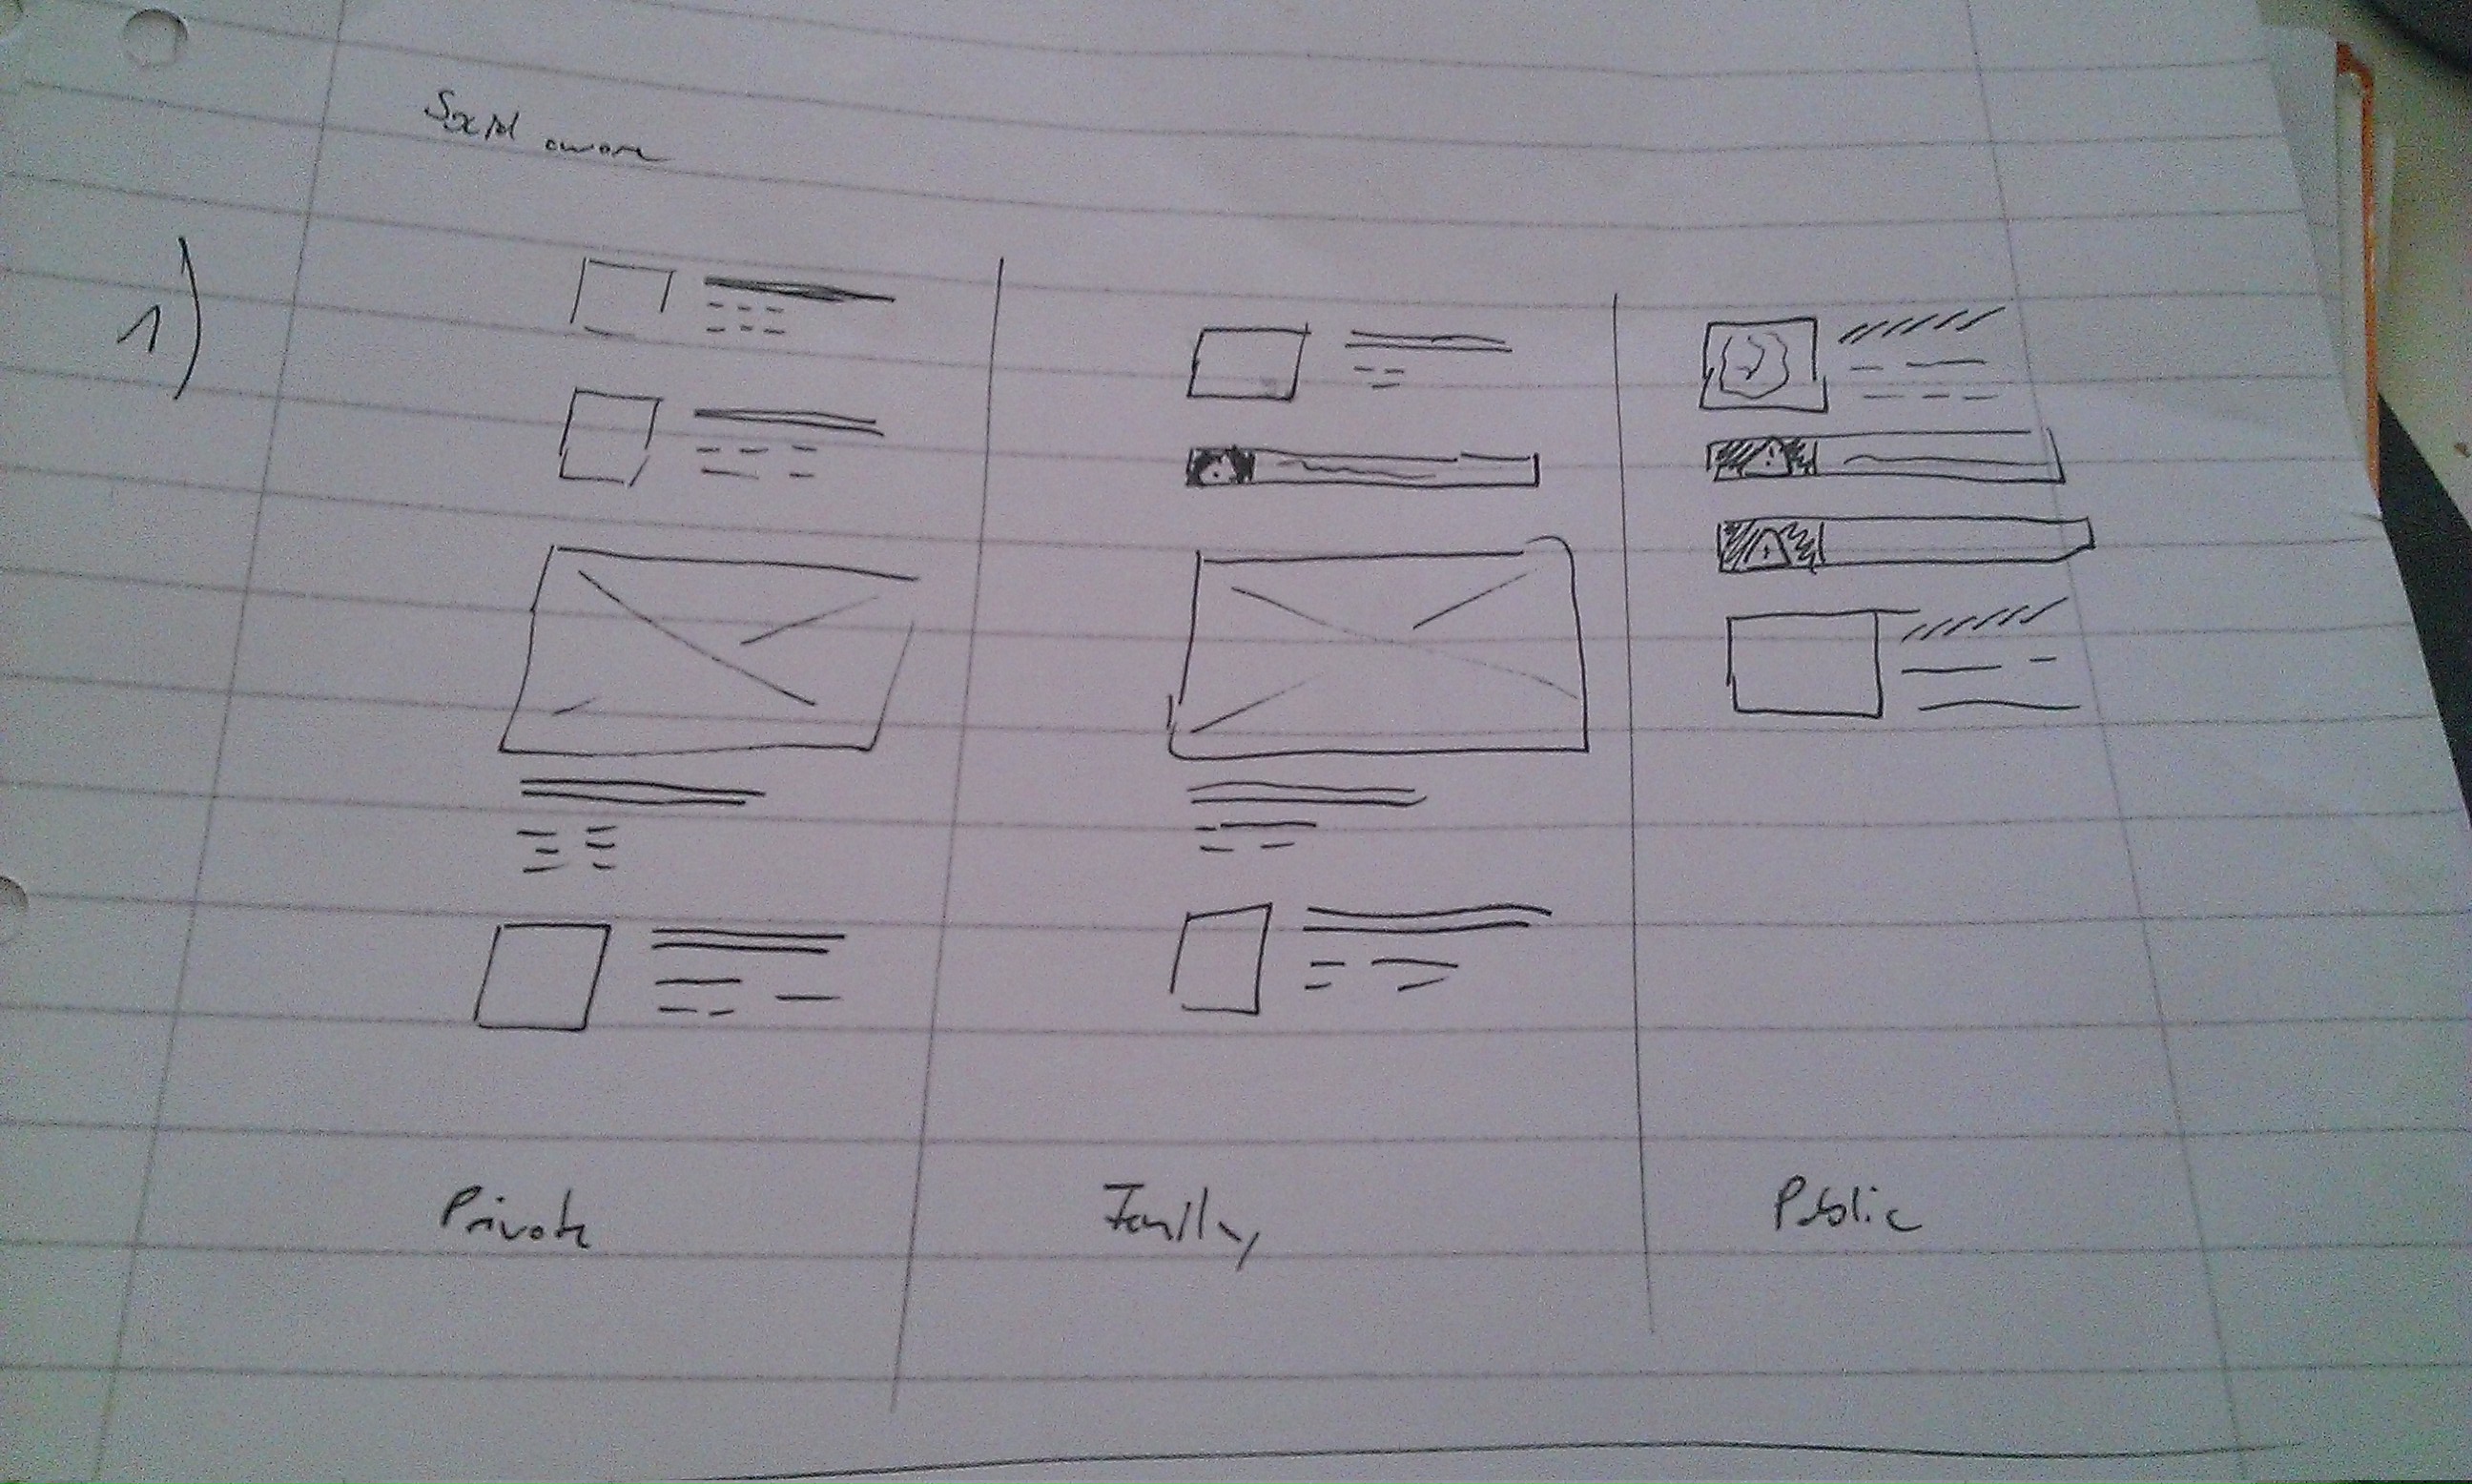 Social aware
1)
Private
Family
Public